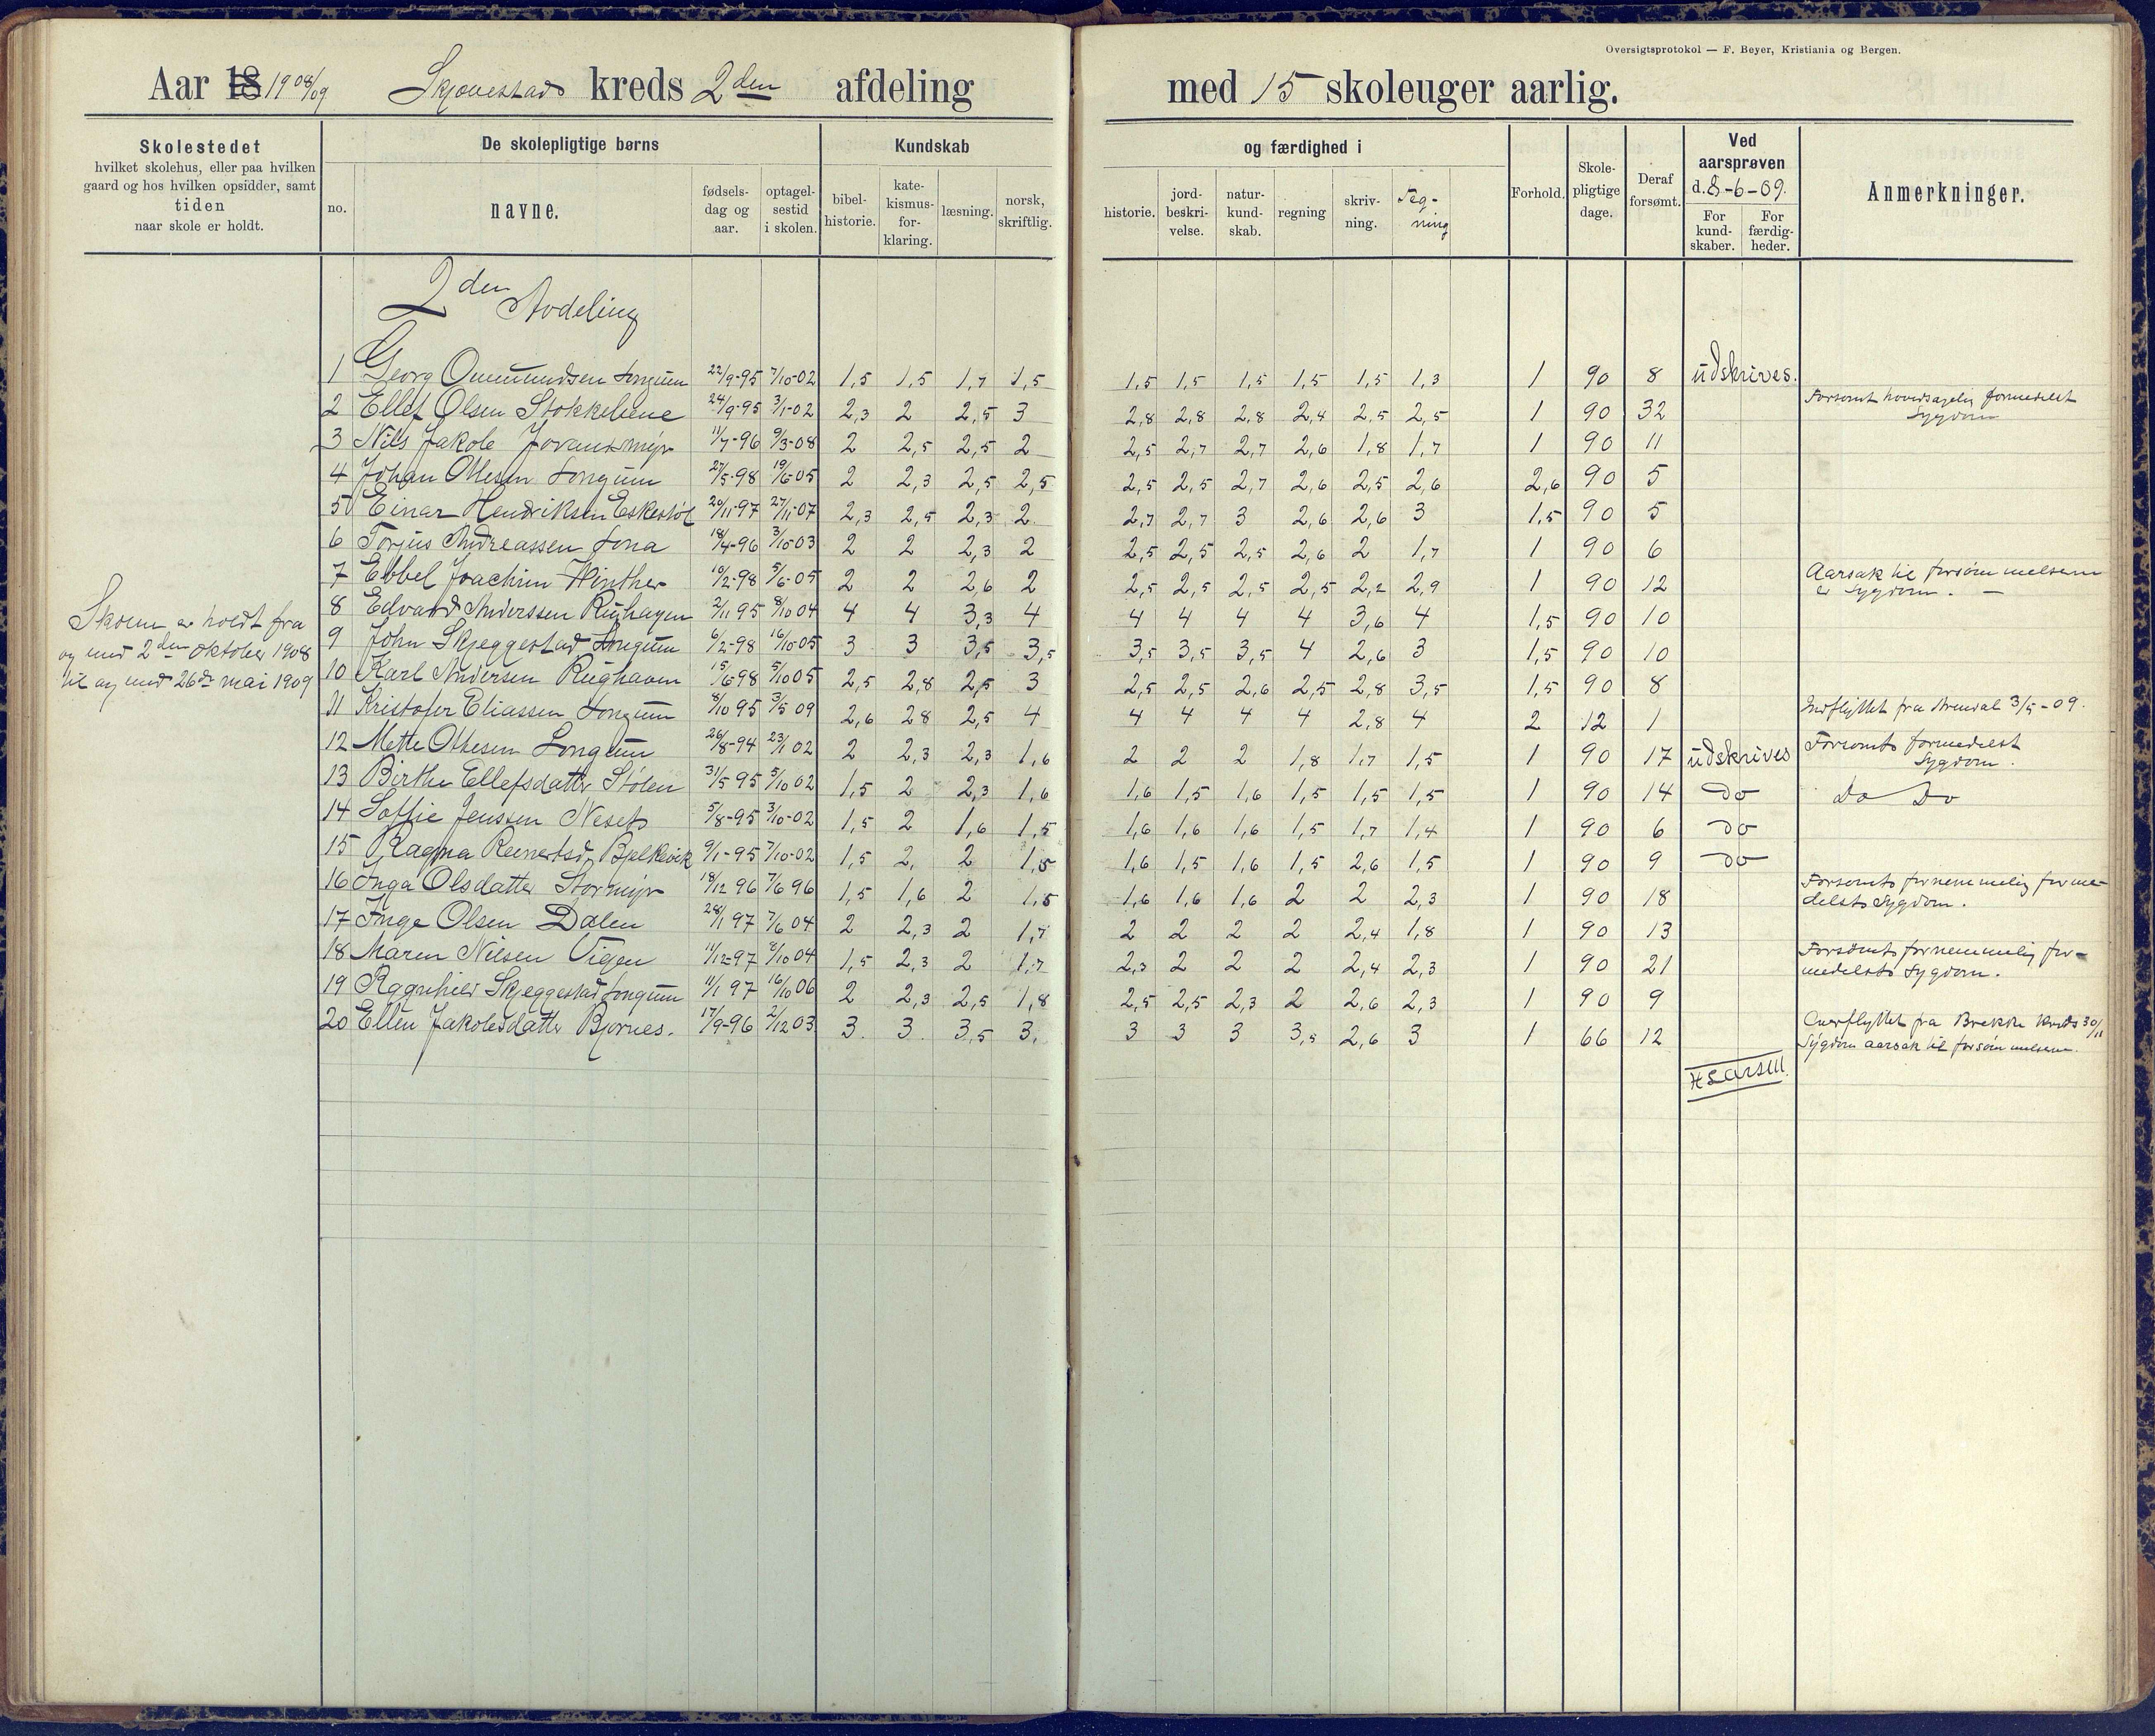 Oversigtsprotokol — F. Beyer, Kristiania og Bergen.
Aar 18 1908/09 kreds 2den afdeling med 15 skoleuger aarlig.
Skolestedet
hvilket skolehus, eller paa hvilken
gaard og hos hvilken opsidder, samt
tiden
naar skole er holdt.
De skolepligtige børns
no. navne. fødsels-dag og aar. optagel-sestid i skolen.
Kundskab og færdighed i
bibel-historie. kate-kismus-for-klaring. læsning. norsk, skriftlig. historie. jord-beskri-velse. natur-kund-skab. regning skriv-ning. Teg-ning
Forhold. Skole-pligtige dage. Deraf forsømt.
Ved aarsprøven d. 8-6-09.
For kund-skaber. For færdig-heder.
Anmerkninger.
2den Avdeling
Skolen er holdt fra
og med 2den oktober 1908
til og med 26de mai 1909
1 Georg Ommundsen Longum 22/9-95 7/10-02 1,5 1,5 1,7 1,5 1,5 1,5 1,5 1,5 1,5 1,3 1 90 8 udskrives.
2 Ellef Olsen Stokkeliene 24/9-95 3/1-02 2,3 2 2,5 3 2,8 2,8 2,8 2,4 2,5 2,5 1 90 32 Forsømt hovedsagelig formedelst Sygdom
3 Nils Jakob 11/7-96 9/3-08 2 2,5 2,5 2 2,5 2,7 2,7 2,6 1,8 1,7 1 90 11
4 Johan Ottesen Longum 27/5-98 19/6-05 2 2,3 2,5 2,5 2,5 2,5 2,7 2,6 2,5 2,6 2,6 90 5
5 Einar Hendriksen Eskestøl 20/11-97 27/11-07 2,3 2,5 2,3 2 2,7 2,7 3 2,6 2,6 3 1,5 90 5
6 Torjus Andreassen Lona 18/4-96 3/10-03 2 2 2,3 2 2,5 2,5 2,5 2,6 2 1,7 1 90 6
7 Ebbel Joachim Winther 10/2-98 5/6-05 2 2 2,6 2 2,5 2,5 2,5 2,5 2,2 2,9 1 90 12 Aarsak til forsømmelserne er Sygdom. —
8 Edvard Anderssen Rughagen 2/11 95 8/10 04 4 4 3,3 4 4 4 4 4 3,6 4 1,5 90 10
9 John Skjeggestad Longum 6/2-98 16/10-05 3 3 3,5 3,5 3,5 3,5 3,5 4 2,6 3 1,5 90 10
10 Karl Andersen Rughaven 15/6 98 5/10 05 2,5 2,8 2,5 3 2,5 2,5 2,6 2,5 2,8 3,5 1,5 90 8
11 Kristofer Eliassen Longum 8/10 95 3/5 09 2,6 28 2,5 4 4 4 4 4 2,8 4 2 12 1 Indflyttet fra Arendal 3/5-09.
12 Mette Ottesen Longum 26/8-94 23/1 02 2 2,3 2,3 1,6 2 2 2 1,8 1,7 1,5 1 90 17 udskrives Forsømts formedelst Sygdom.
13 Birthe Ellefsdatter Stølen 31/5 95 5/10 02 1,5 2 2,3 1,6 1,6 1,5 1,6 1,5 1,5 1,5 1 90 14 do Do Do
14 Soffie Jenssen Neset 5/8-95 3/10-02 1,5 2 1,6 1,5 1,6 1,6 1,6 1,5 1,7 1,4 1 90 6 do
15 Ragna Reinertsd. Bjelkevik 9/1-95 7/10-02 1,5 2, 2 1,5 1,6 1,5 1,6 1,5 2,6 1,5 1 90 9 do
16 Inga Olsdatter Stormyr 18/12 96 7/6 96 1,5 1,6 2 1,5 1,6 1,6 1,6 2 2 2,3 1 90 18 Forsømts fornemmelig formedelst Sygdom.
17 Inga Olsen Dalen 28/1 97 7/6 04 2 2,3 2 1,7 2 2 2 2 2,4 1,8 1 90 13
18 Maren Nilsen Vigen 11/12-97 8/10 04 1,5 2,3 2 1,7 2,3 2 2 2 2,4 2,3 1 90 21 Forsømts fornemmelig for-medelsts Sygdom.
19 Ragnhild Skjeggestad Longum 11/1 97 16/10 06 2 2,3 2,5 1,8 2,5 2,5 2,3 2 2,6 2,3 1 90 9
20 Ellen Jakobsdatter Bjornes. 17/9-96 2/12 03 3. 3 3,5 3. 3 3 3 3,5 2,6 3 1 66 12 Overflyttet fra Brekke kreds 30/11 Sygdom aarsak til forsømmelserne.